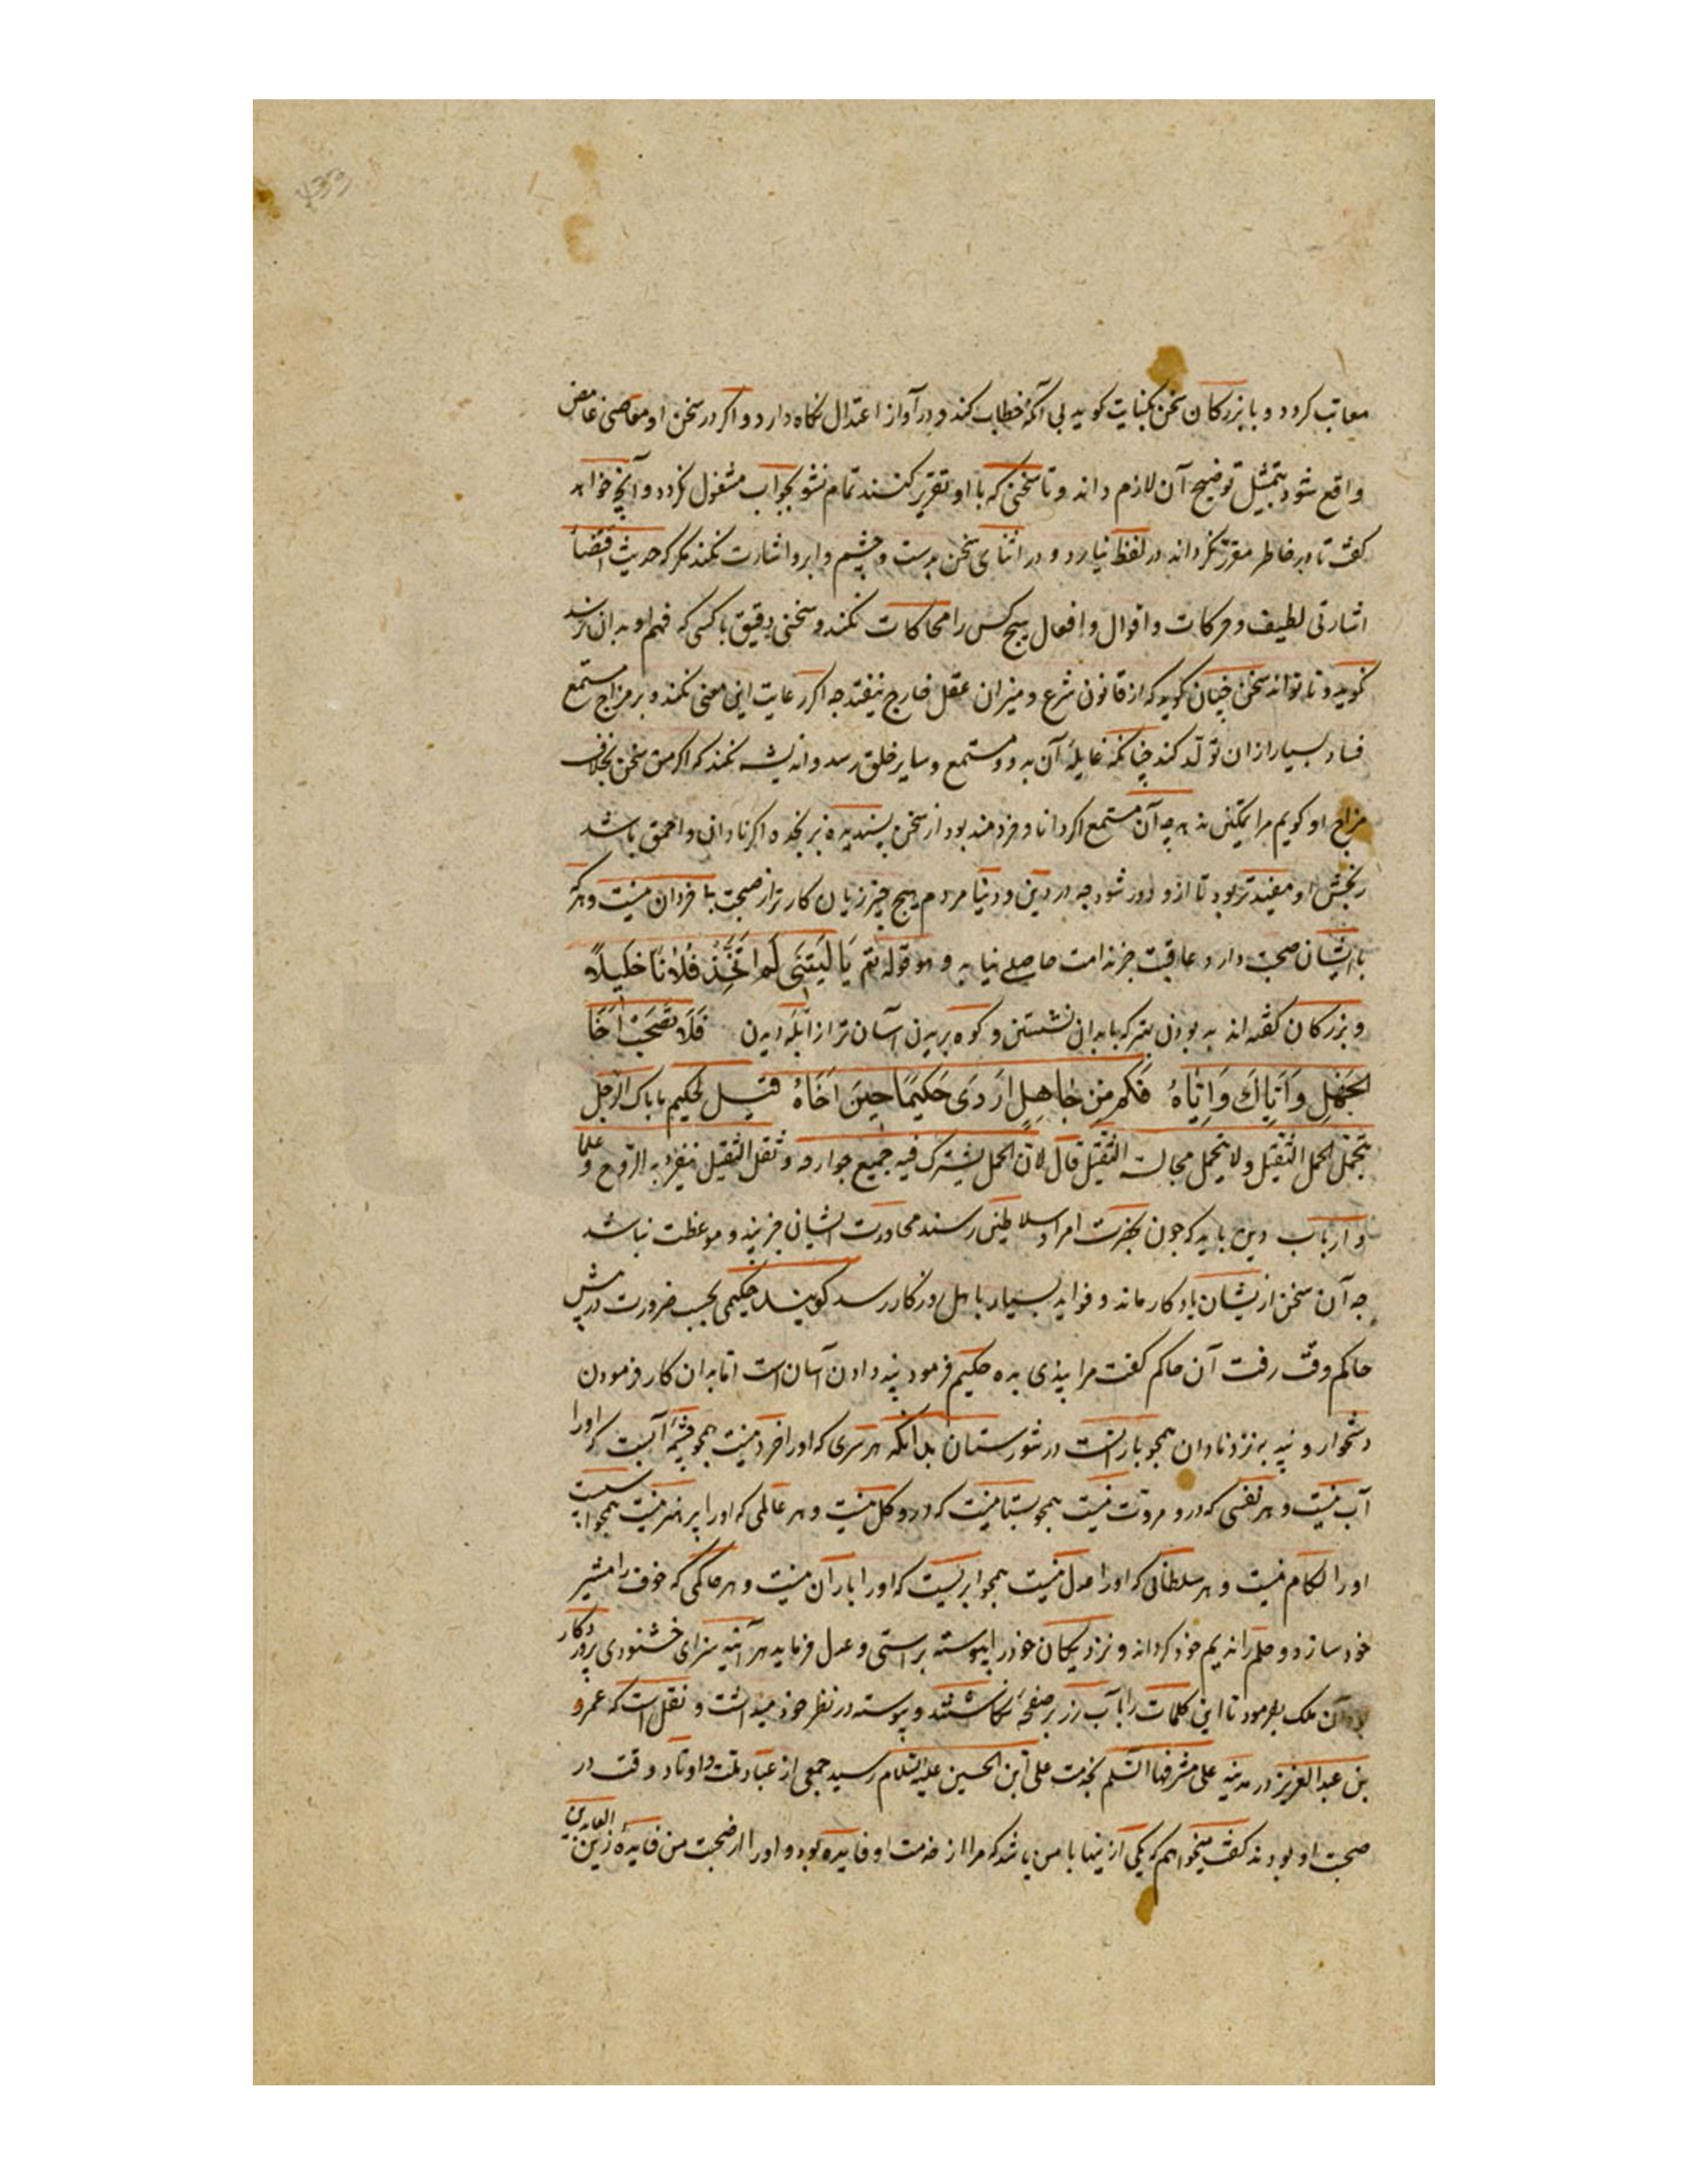 معاتب کردد و با بزرکان سخن بکنایت کوید بی آنکه خطاب کند و در آواز اعتدال نکاه دارد و اکر در سخن او معانی غامض
واقع شود بتمثیل توضیح آن لازم داند و تا سخنی که با او تقریر کنند تمام نشود بجواب مشغول نکردد و آنچ خواهد
کفت تا در خاطر مقرر نکرداند در لفظ نیارد و در اثنای سخن بدست و چشم و ابرو اشارت نکند مکر که حدیث اقتضاء
اشارتی لطیف و حرکات و اقوال و افعال هیچ کس را محاکات نکند و سخنی دقیق با کسی که فهم او بدان نرسد
نکوید و تا تواند سخن چنان کوید که از قانون شرع و میزان عقل خارج نیفتد جه اکر رعایت این معنی نکند و بر مزاج مستمع
فساد بسیار ازان تولد کند چنانکه غایلهٔ آن بدو و مستمع و سایر خلق رسد و اندیشه نکند که اکر من سخن بخلاف
مزاج او کویم مرا تمکین ندهد جه آن مستمع اکر دانا و خردمند بود از سخن پسندیده نرنجد و اکر نادان و احمق باشد
رنجش او مفیدتر بود تا ازو دور شود جه در دین و دنیا مردم هیچ چیز زیان کارتر از صحبت نا خردان نیست و هرکه
با ایشان صحبت دارد عاقبت جز ندامت حاصلی نیابد و هو قوله تع یَا لَیْتَنِی لَمْ اَتَّخِذْ فُلَانًا خَلِیلًا
و بزرکان کفته اند بد بودن بهتر که با بدان نشستن و کوه بریدن آسان تر از ابله دیدن فَلَا تَصْحَبْ اَخَا
الجَهْلِ وَاَیَّاكَ وَاِیَّاهُ فَکَمْ مِنْ جَاهِلٍ اَرْدَی حَکِیمًا حِینَ اَخَاهُ قیل لحکیم ما بال الرجل
یتحمل الحمل الثقیل ولا یتحمل مجالسه الثقیل قال لان الحمل یشترك فیه جمیع جوارحه و ثقل الثقیل ینفرد به الروح و علما
و ارباب دین باید که جون بحضرت امرا و سلاطین رسند محاورت ایشان جز پند و موعظت نباشد
جه آن سخن ازیشان یادکار ماند و فواید بسیار باهل روزکار رسد کویند حکیمی بحسب ضرورت در پیش
حاکم وقت رفت آن حاکم کفت مرا پندی بده حکیم فرمود پند دادن آسان است اما بدان کار فرمودن
دشخوار و پند به نزد نادان همجو بارانست در شورستان بدانکه هر سری که او را خرد نیست همجو چشمهٔ آبست که او را
آب نیست و هر نفسی که درو مروت نیست همجو بستانیست که درو کل نیست و هر عالمی که او را پرهیز نیست همجو اسبیست
او را لکام نیست و هر سلطانی که او را عدل نیست همجو ابریست که او را باران نیست و هر حاکمی که خوف را مشیر
خود سازد و حلم را ندیم خود کرداند و نزدیکان خود را پیوسته براستی و عدل فرماید هر آینه سزای خشنودی پروردکار
بود آن ملک بفرمود تا این کلمات را بآب زر بر صفحهٔ نکاشتند و پیوسته در نظر خود میداشت و نقل است که عمرو
بن عبدالعزیز در مدینه علی مشرفها السلم بخدمت علی ابن الحسین علیه السلام رسید جمعی از عباد ملت و اوتاد وقت در
صحبت او بودند کفت میخواهم که یکی ازینها با من باشد که مرا از خدمت او فایده بود و او را از صحبت من فایده زین العابدین